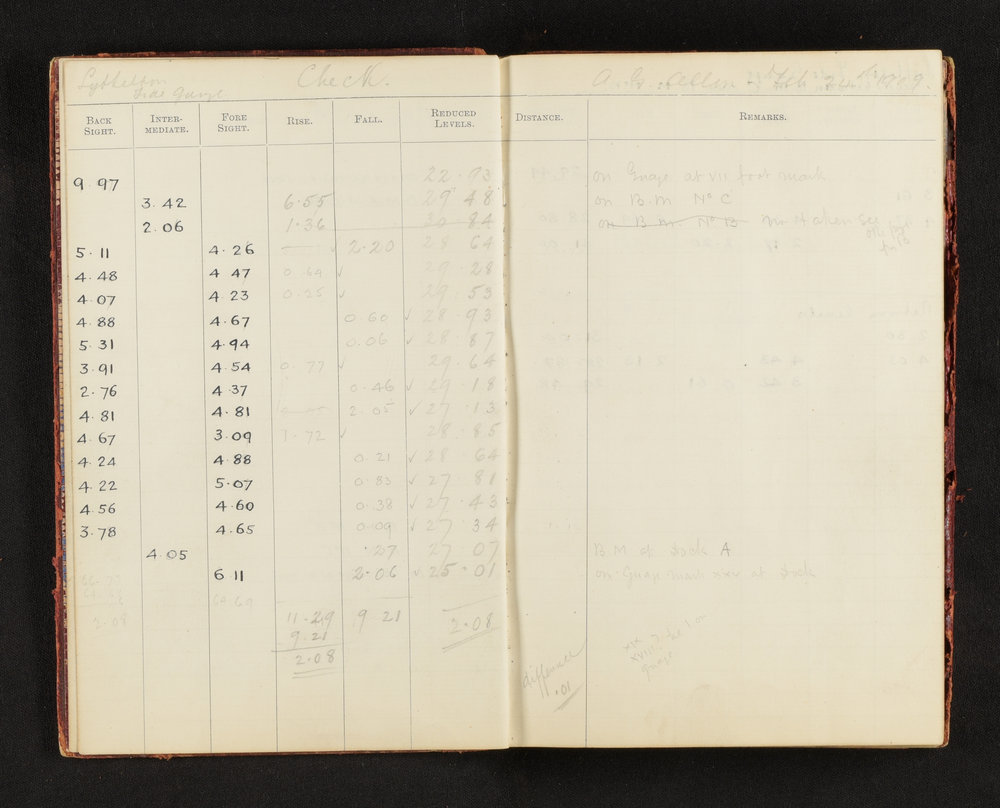 Lyttelton Check. A. G. Allom 24th 1909.
Tide Guage
BACK SIGHT. INTER-MEDIATE. FORE SIGHT. RISE. FALL. REDUCED LEVELS. DISTANCE. REMARKS.
22.93 on Guage at VII foot mark
9.97
3.42 6.55 29.48 on B.M. No C
2.06 1.36 30.84 on B.M. No B not taken see
5.11 4.26 2.20 28.64
4.48 4.47 0.64 29.28
4.07 4.23 0.25 29.53
4.88 4.67 0.60 28.93
5.31 4.94 0.06 28.87
3.91 4.54 0.77 29.64
2.76 4.37 0.46 29.18
4.81 4.81 2.05 27.13
4.67 3.09 1.72 28.85
4.24 4.88 0.21 28.64
4.22 5.07 0.83 27.81
4.56 4.60 0.38 27.43
3.78 4.65 0.09 27.34
4.05 .27 27.07 B M at Dock A
6.11 2.06 25.01 on Guage mark XXV at Dock
64.69
2.08 11.29 9 21 2.08
9.21
2.08
XIX
XVIII to be 1 on
guage
difference
.01